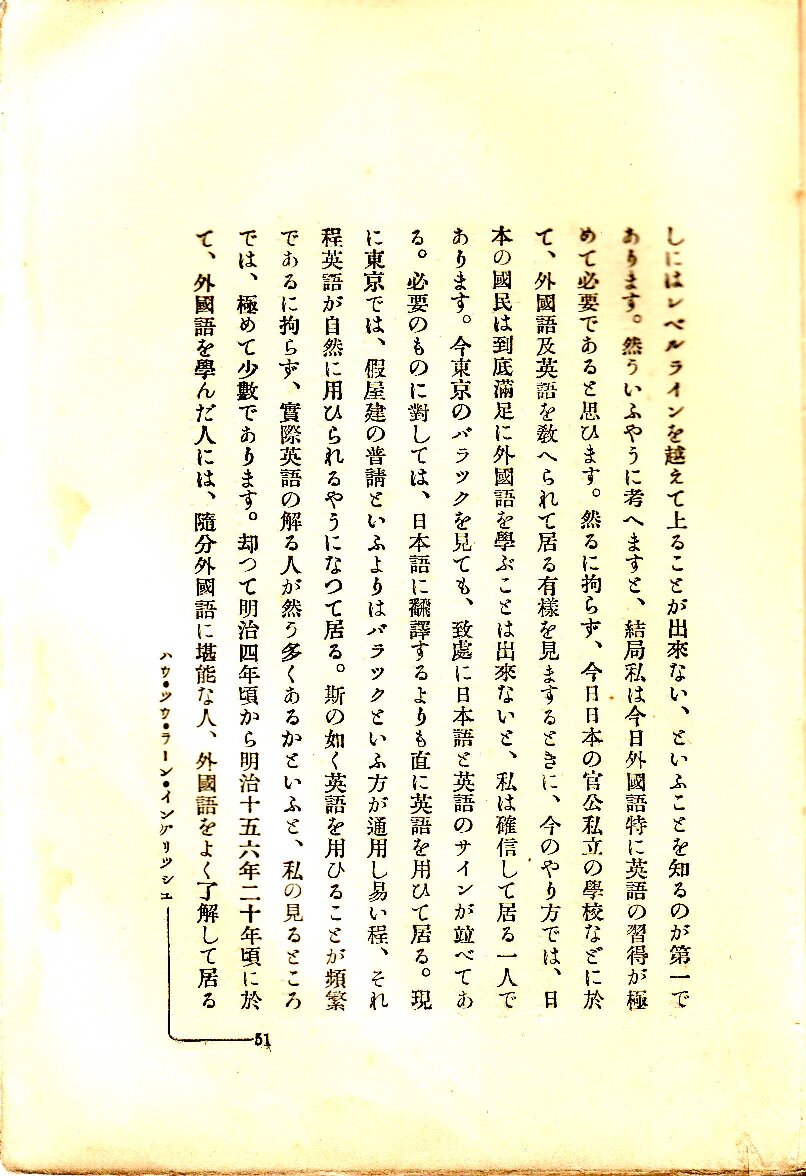 しにはレベルラインを越えて上ることが出來ない、といふことを知るのが第一で
あります。然ういふやうに考へますと、結局私は今日外國語特に英語の習得が極
めて必要であると思ひます。然るに拘らず、今日日本の官公私立の學校などに於
て、外國語及英語を敎へられて居る有樣を見まするときに、今のやり方では、日
本の國民は到底滿足に外國語を學ぶことは出來ないと、私は確信して居る一人で
あります。今東京のバラックを見ても、致處に日本語と英語のサインが竝べてあ
る。必要のものに對しては、日本語に飜譯するよりも直に英語を用ひて居る。現
に東京では、假屋建の普請といふよりはバラックといふ方が通用し易い程、それ
程英語が自然に用ひられるやうになつて居る。斯の如く英語を用ひることが頻繁
であるに拘らず、實際英語の解る人が然う多くあるかといふと、私の見るところ
では、極めて少數であります。却つて明治四年頃から明治十五六年二十年頃に於
て、外國語を學んだ人には、隨分外國語に堪能な人、外國語をよく了解して居る
ハウ・ツウ・ラーン・イングリッシュ
51